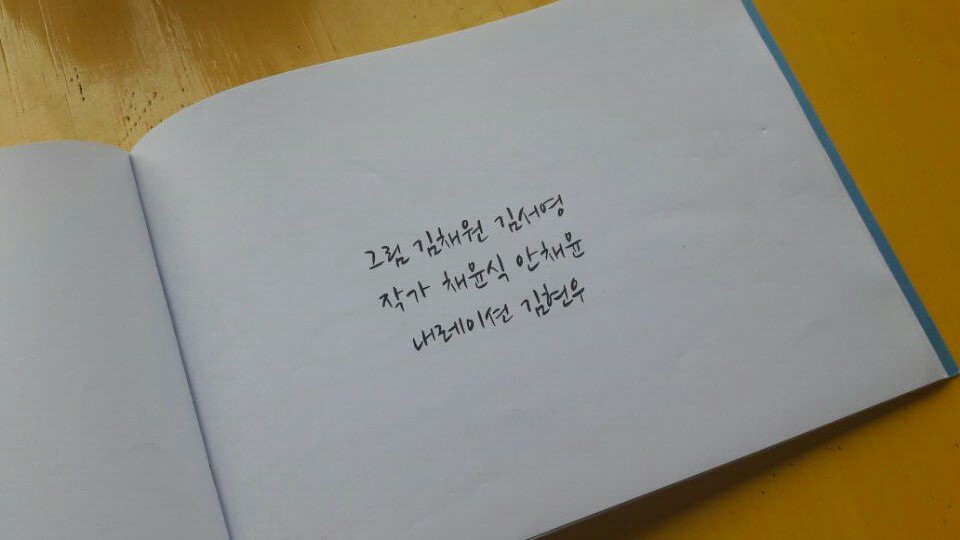 그림 김채원 김서영
작가 채윤식 안채윤
내레이션 김현우